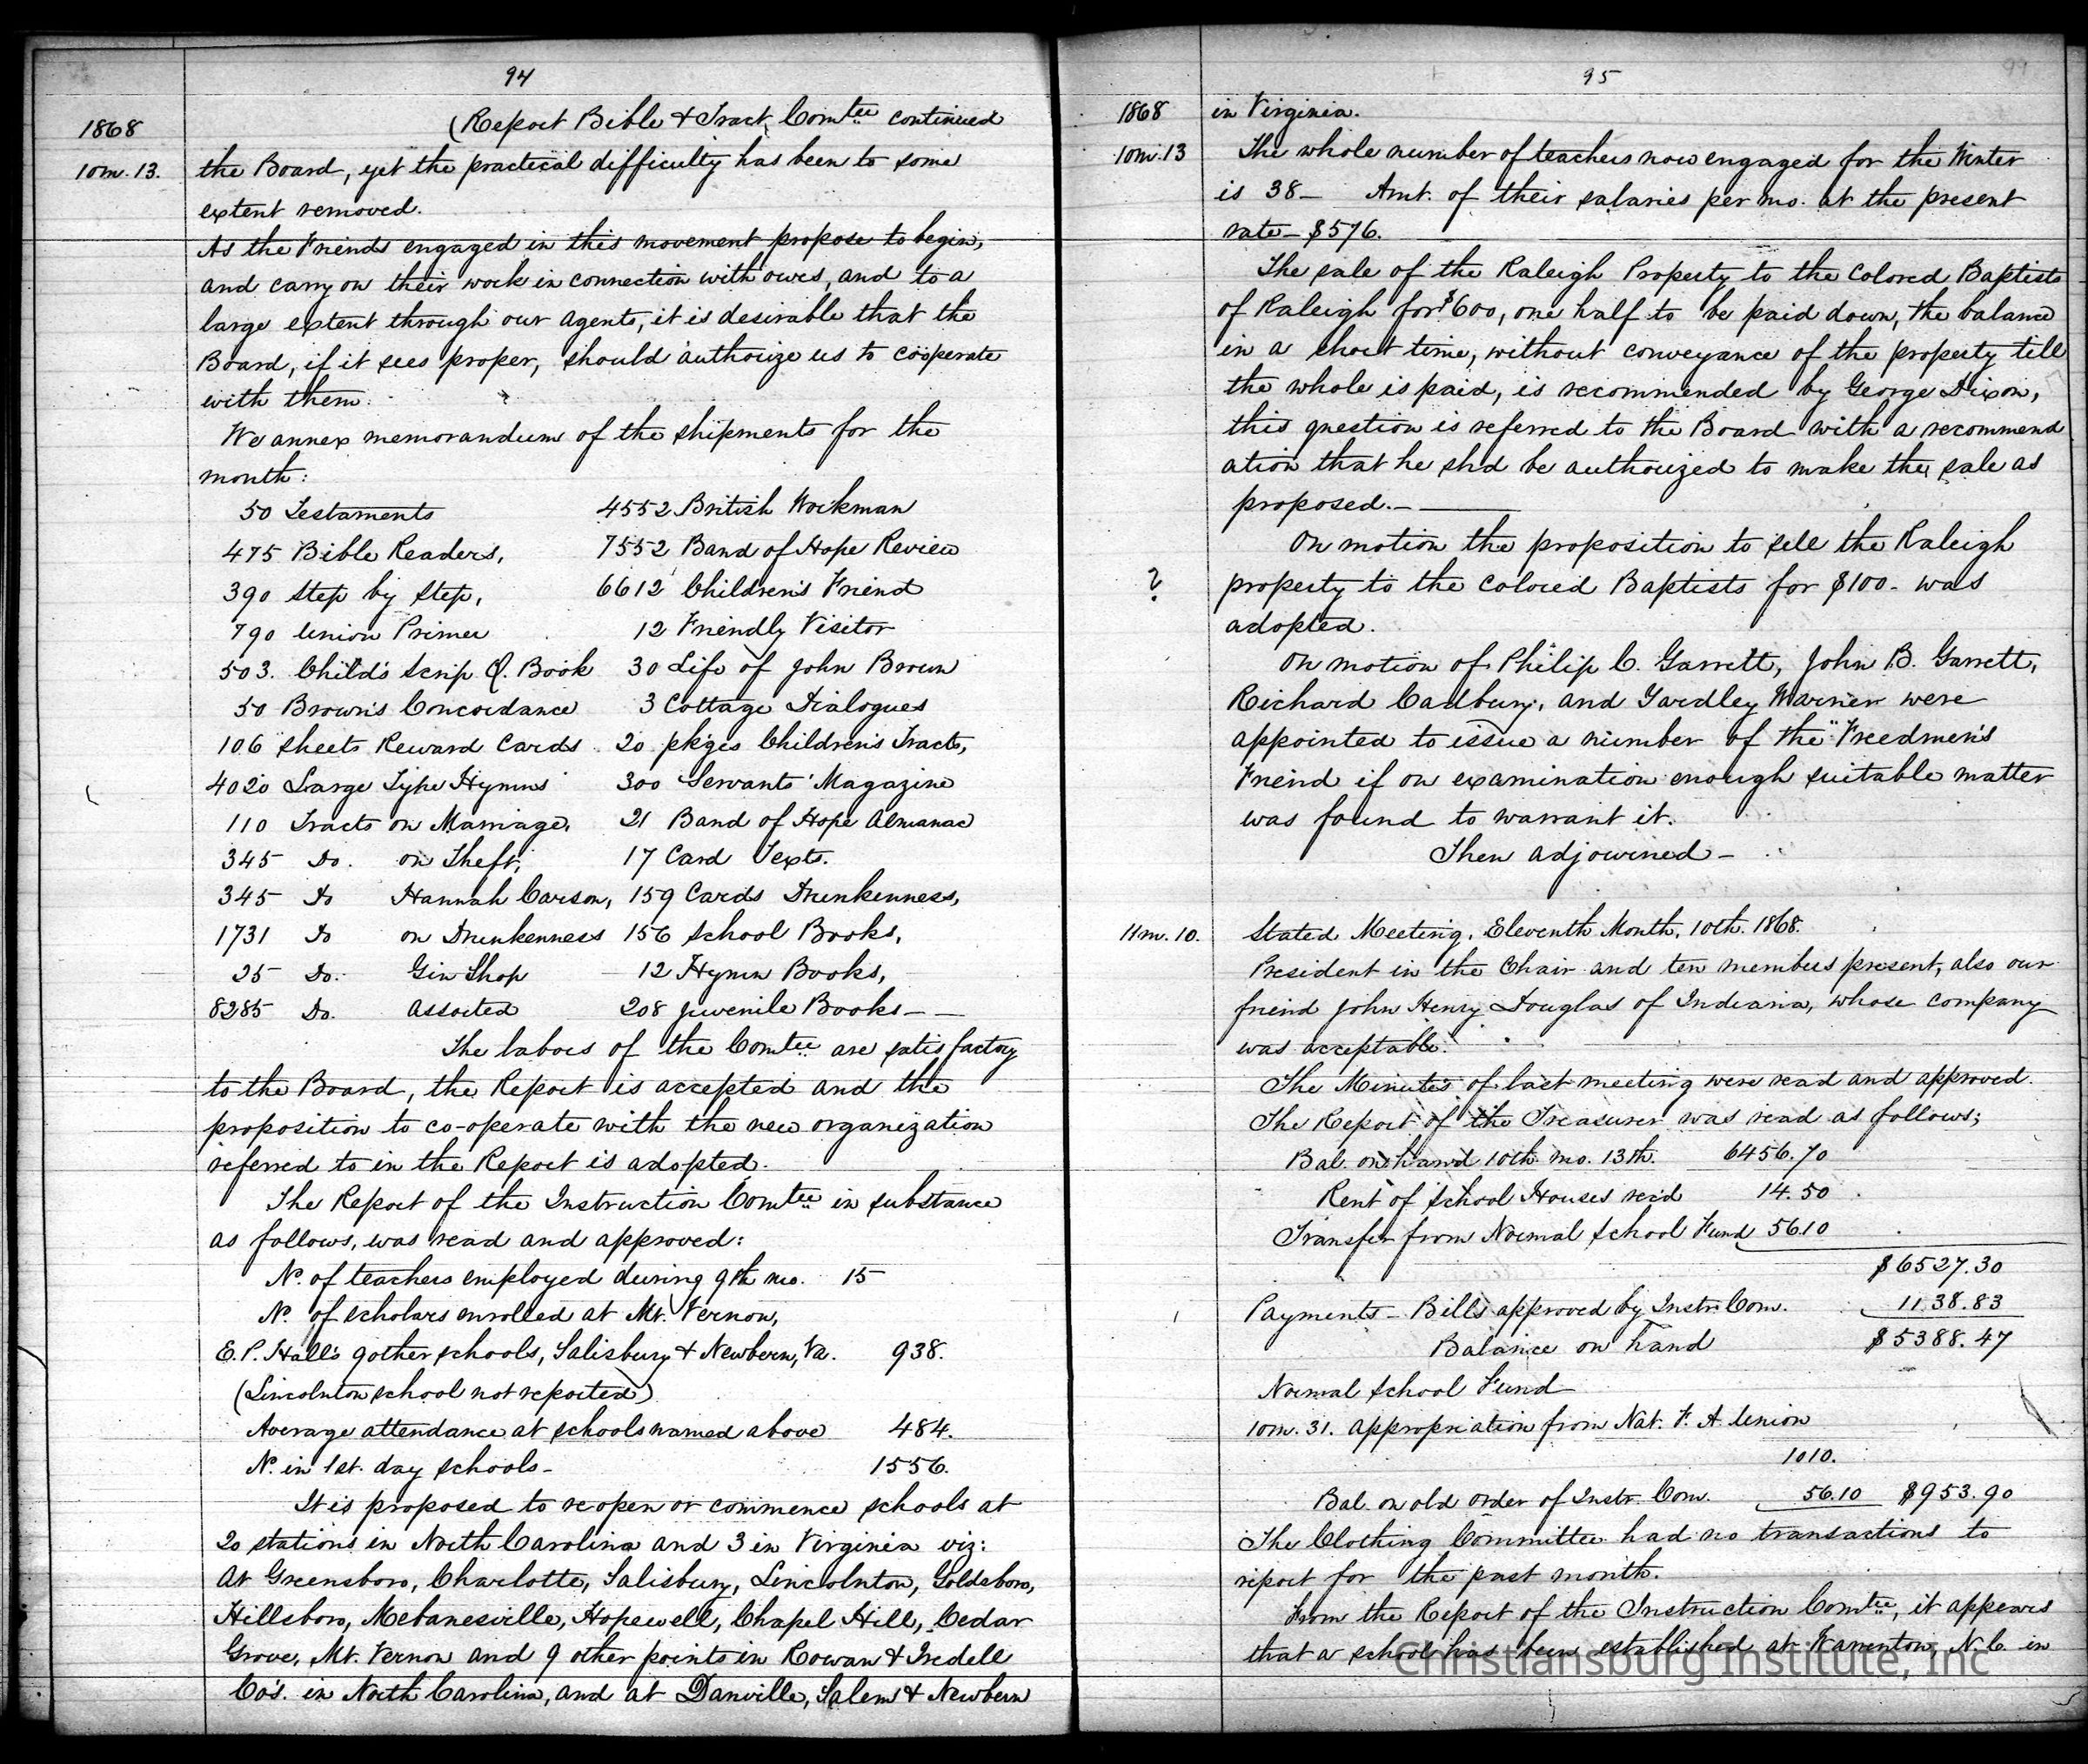 94
(Report Bible & Tract Comtee continued
1868
10m. 13. the Board, yet the practical difficulty has been to some
extent removed.
As the Friends engaged in this movement propose to begin,
and carry on their work in connection with ours, and to a
large extent through our agents, it is desirable that the
Board, if it sees proper, should authorize us to cooperate
with them.
We annex memorandum of the shipments for the
month:
50 Testaments 4552 British Workman
475 Bible Readers, 7552 Band of Hope Review
390 Step by Step, 6612 Children's Friend
790 Union Primer 12 Friendly Visitor
503. Child's Scrip. Q. Book 30 Life of John Brown
50 Brown's Concordance 3 Cottage Dialogues
106 Sheets Reward Cards 20 pk'ges Children's Tracts,
4020 Large Type Hymns 300 Servants' Magazine
110 Tracts on Marriage, 21 Band of Hope Almanac
345 Do. on Theft, 17 Card Texts.
345 Do Hannah Carson, 159 Cards Drunkenness,
1731 Do on Drunkenness 156 School Books,
25 Do. Gin Shop 12 Hymn Books,
8285 Do. Assorted 208 Juvenile Books
The labors of the Comtee are satisfactory
to the Board, the Report is accepted and the
proposition to co-operate with the new organization
referred to in the Report is adopted.
The Report of the Instruction Comtee in substance
as follows, was read and approved:
No. of teachers employed during 9th mo. 15
No. of scholars enrolled at Mt. Vernon,
E. P. Hall's 9 other schools, Salisbury & Newbern, Va. 938.
(Lincolnton school not reported)
Average attendance at schools named above 484.
No. in 1st. day schools - 1556.
It is proposed to reopen or commence schools at
20 stations in North Carolina and 3 in Virginia viz:
At Greensboro, Charlotte, Salisbury, Lincolnton, Goldsboro,
Hillsboro, Mebanesville, Hopewell, Chapel Hill, Cedar
Grove, Mt. Vernon and 9 other points in Rowan & Iredell
Co's. in North Carolina, and at Danville, Salem & Newbern
95
1868 in Virginia.
10m. 13 The whole number of teachers now engaged for the Winter
is 38 - Amt. of their salaries per mo. at the present
rate - $576.
The sale of the Raleigh Property to the Colored Baptists
of Raleigh for $600, one half to be paid down, the balance
in a short time, without conveyance of the property till
the whole is paid, is recommended by George Dixon,
this question is referred to the Board with a recommend
ation that he sh'd be authorized to make the sale as
proposed. -
On motion the proposition to sell the Raleigh
? property to the Colored Baptists for $100 - was
adopted.
On motion of Philip C. Garrett, John B. Garrett,
Richard Cadbury, and Yardley Warner were
appointed to issue a number of the "Freedmen's
Friend if on examination enough suitable matter
was found to warrant it.
Then adjourned -
11m. 10. Stated Meeting, Eleventh Month, 10th. 1868.
President in the Chair and ten members present, also our
friend John Henry Douglas of Indiana, whose company
was acceptable.
The Minutes of last meeting were read and approved.
The Report of the Treasurer was read as follows;
Bal. on hand 10th. mo. 13th. 6456.70
Rent of School Houses rec'd 14.50
Transfer from Normal School Fund 56.10
$6527.30
Payments - Bills approved by Instr. Com. 1138.83
Balance on hand $5388.47
Normal School Fund
10m. 31. appropriation from Nat. F. A. Union
1010.
Bal. on old order of Instr. Com. 56.10 $953.90
The Clothing Committee had no transactions to
report for the past month.
From the Report of the Instruction Comtee, it appears
that a school has been established at Warrenton, N.C. in
Christiansburg Institute, Inc